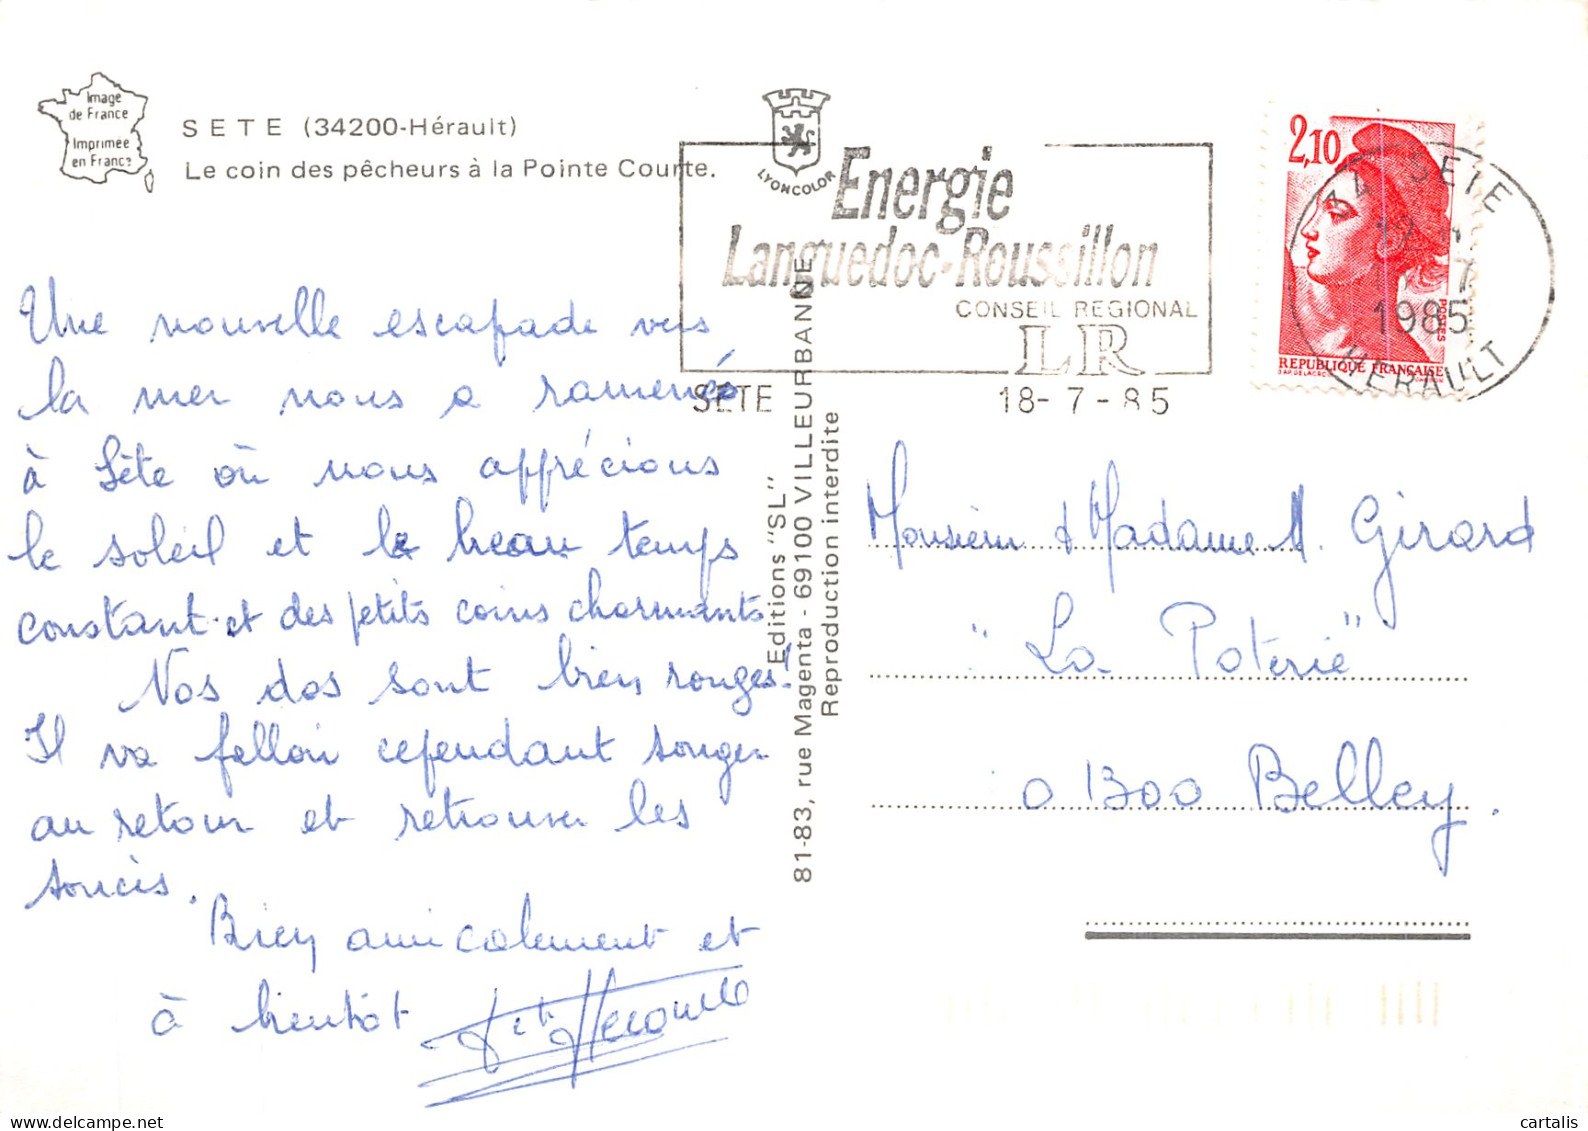 Image
de France
Imprimée
en France
SETE (34200-Hérault)
Le coin des pêcheurs à la Pointe Courte.
LYONCOLOR
Energie
Languedoc-Roussillon
CONSEIL REGIONAL
LR
SETE 18-7-85
2,10
POSTES
REPUBLIQUE FRANÇAISE
34 SETE
1985
HERAULT
Une nouvelle escapade vers
la mer nous a ramenés
à Sète où nous apprécions
le soleil et le beau temps
constant et des petits coins charmants
Nos dos sont bien rouges!
Il va falloir cependant songer
au retour et retrouver les
soucis.
Bien amicalement et
à bientôt
Editions "SL"
81-83, rue Magenta - 69100 VILLEURBANNE
Reproduction interdite
Monsieur & Madame M. Girard
"La Poterie"
01300 Belley.
cartalis